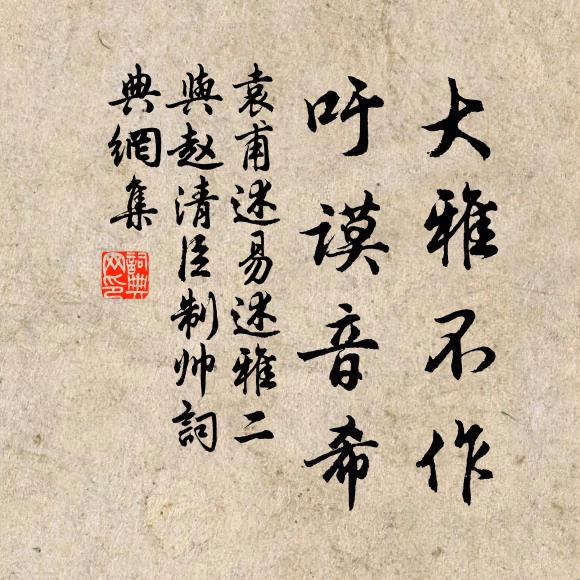 大雅不作
吁謨音希
袁甫述易述雅二
與赵清臣制帅詞
典網集
詞典网印